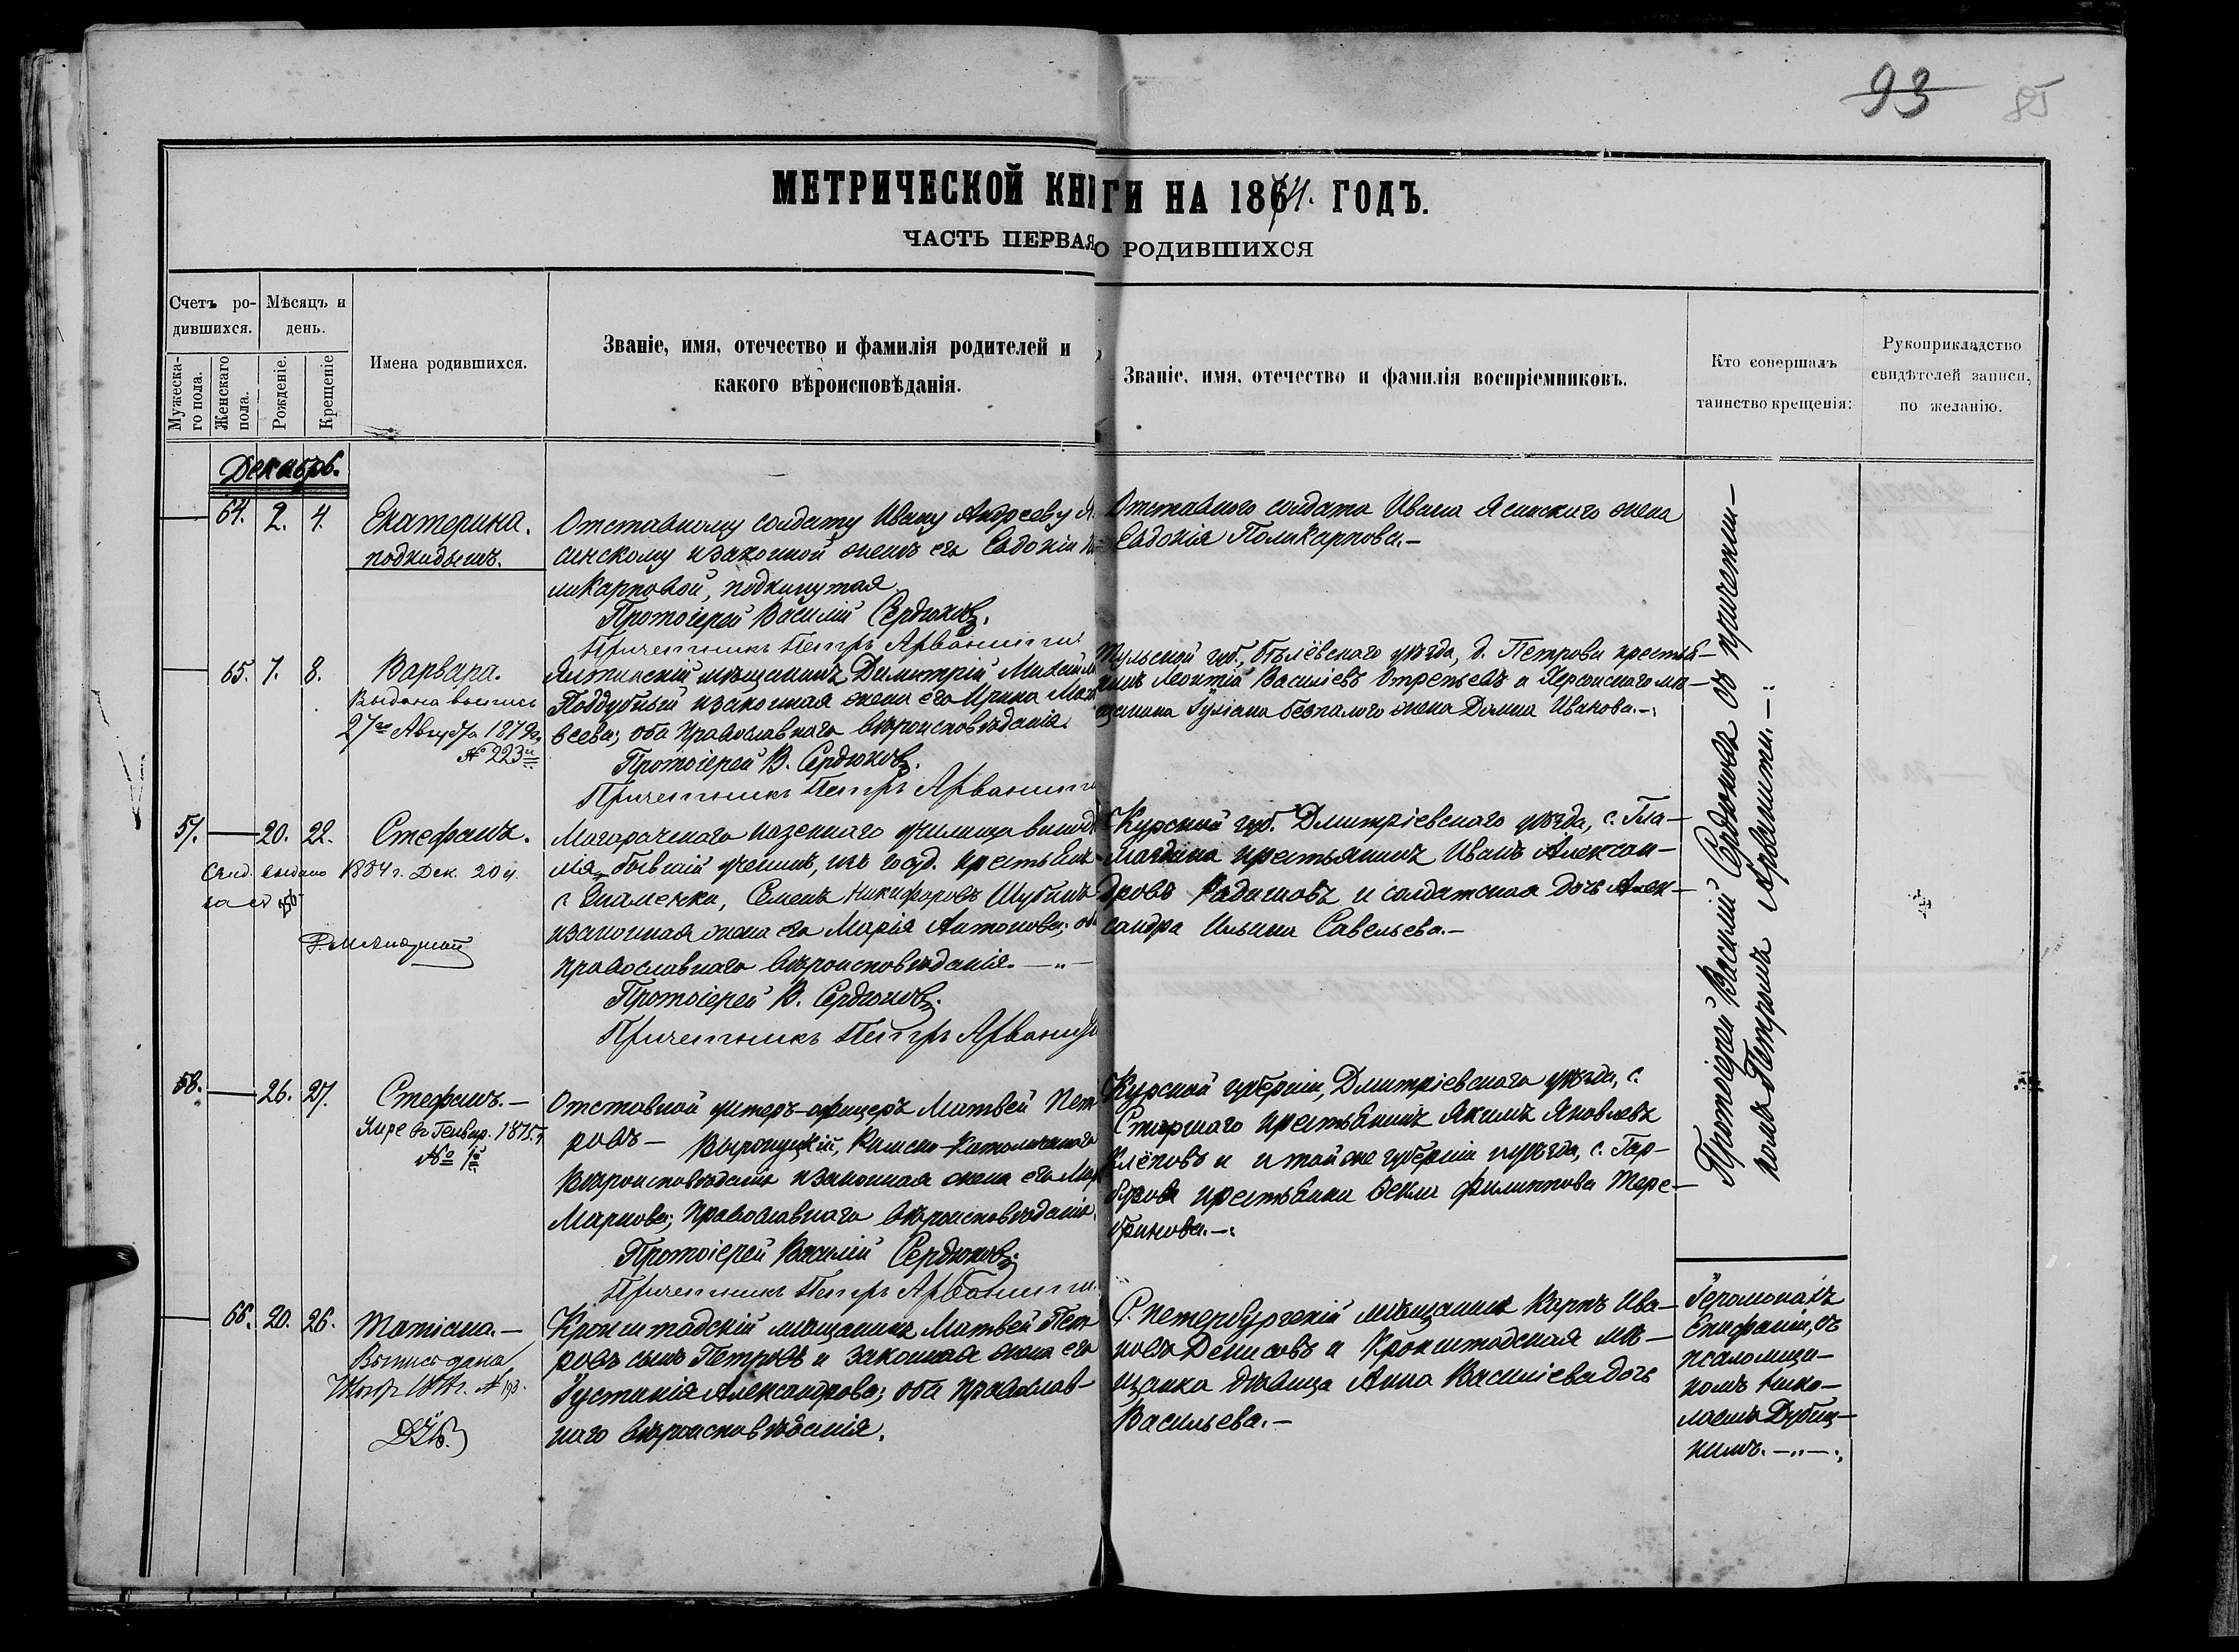 93
85
МЕТРИЧЕСКОЙ КНИГИ НА 1874. ГОДЪ.
ЧАСТЬ ПЕРВАЯ О РОДИВШИХСЯ
Счетъ родившихся.
Мужескаго пола.
Женскаго пола.
Мѣсяцъ и день.
Рожденіе.
Крещеніе
Имена родившихся.
Званіе, имя, отечество и фамилія родителей и
какого вѣроисповѣданія.
Званіе, имя, отечество и фамилія воспріемниковъ.
Кто совершалъ
таинство крещенія:
Рукоприкладство
свидѣтелей записи,
по желанію.
Декабрь.
64. 2. 4.
Екатерина.
подкидышъ.
Отставному солдату Ивану Андрееву Я-
синскому и законной женѣ его Евдокіи По-
ликарповой, подкинутая
Протоіерей Василій Сердюковъ.
Причетникъ Петръ Арванити
Отставного солдата Ивана Ясинскаго жена
Евдокія Поликарпова.—
65. 7. 8.
Варвара.
Выдана выпись
27го Августа 1879г.
№ 223й
Ялтинскій мѣщанинъ Димитрій Михайло
Поддубный и законная жена его Ирина Мат
веева; оба православнаго вѣроисповѣданія.
Протоіерей В. Сердюковъ.
Причетникъ Петръ Арванити
Тульской губ., Бѣлёвскаго уѣзда, д. Петрова крестья-
нинъ Леонтій Васильевъ Отрепьевъ и Херсонскаго мѣ-
щанина Іуліана Безпалого жена Домна Иванова.—
57. — 20. 22.
Стефанъ.
Свид. выдано 1884 г. Дек. 20 ч.
за №
Магарачскаго казеннаго училища винодѣ
лія, бывшій ученикъ, изъ госуд. крестьянъ
с. Знаменки, Семенъ Никифоровъ Шубинъ
и законная жена его Марія Антонова; оба
православнаго вѣроисповѣданія.—"—
Протоіерей В. Сердюковъ.
Причетникъ Петръ Арванити
Курской губ. Дмитріевскаго уѣзда, с.
крестьянинъ Иванъ Алексан-
дровъ Радиновъ и солдатская дочь Алек-
сандра Ильина Савельева.—
58. — 26. 27.
Стефанъ.—
Умре въ Генвар. 1875 г.
№ 1й
Отставной унтеръ-офицеръ Матвей Пет
ровъ — Римско-Католическаго
вѣроисповѣданія и законная жена его Мар
Маркова; православнаго вѣроисповѣданія.
Протоіерей Василій Сердюковъ.
Причетникъ Петръ Арванити
Курской губерніи, Дмитріевскаго уѣзда, с.
Старнаго крестьянинъ Якимъ Яковлевъ
Клёповъ и тойже губерніи и уѣзда, с. Гор-
бузова крестьянка Ѳекла Филиппова Тере-
бринова.—
Протоіерей Василій Сердюковъ съ причетни-
комъ Петромъ Арванити.—"
66. 20. 26.
Татіана.—
Выпись дана
№ 193.
Кронштадскій мѣщанинъ Матвей Пет
ровъ сынъ Петровъ и законная жена его
Іустинія Александрова; оба православ-
наго вѣроисповѣданія.
С. Петербургскій мѣщанинъ Карпъ Ива-
новъ Денисовъ и Кронштадская мѣ-
щанка дѣвица Анна Васильева дочь
Васильева.—
Іеромонахъ
Епифаній, съ
псаломщи-
комъ Нико-
лаемъ Дубиц-
кимъ.—"—